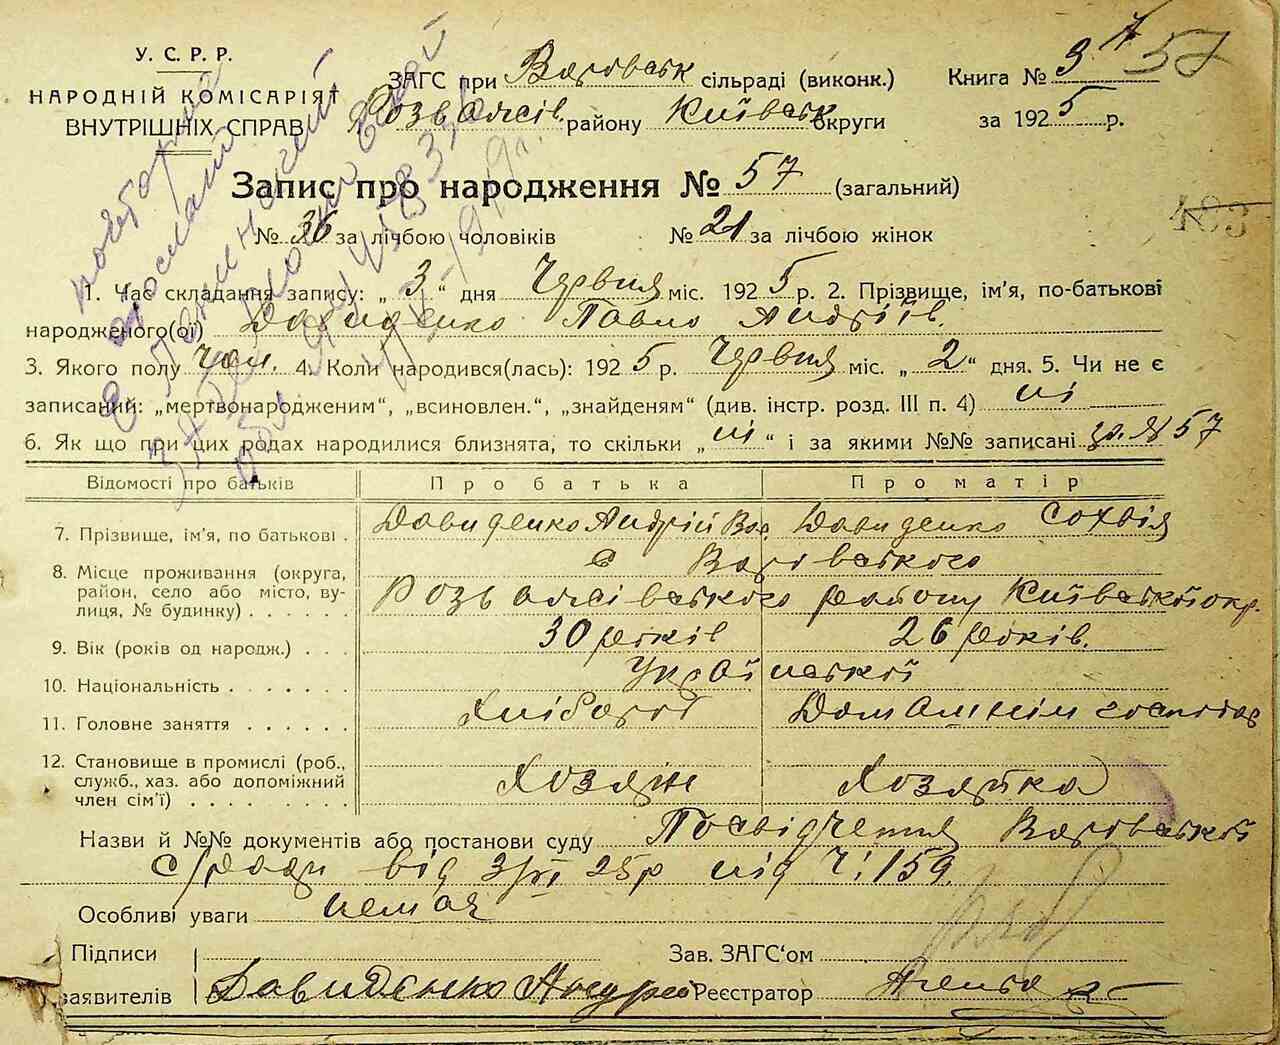 У. С. Р. Р.
НАРОДНІЙ КОМІСАРІЯТ
ВНУТРІШНІХ СПРАВ
ЗАГС при сільраді (виконк.)
Розважів. району Київськ округи
Книга № 3
за 1925 р.
57
Запис про народження № 57 (загальний)
№ 36 за лічбою чоловіків № 21 за лічбою жінок
1. Час складання запису: „ 3 “ дня Червня міс. 1925 р. 2. Прізвище, ім’я, по-батькові
народженого(ої) Давиденко Павло Андріїв.
3. Якого полу Чол. 4. Коли народився(лась): 1925 р. Червня міс. „ 2 “ дня. 5. Чи не є
записаний: „мертвонародженим“, „всиновлен.“, „знайденям“ (див. інстр. розд. III п. 4) ні
6. Як що при цих родах народилися близнята, то скільки „ ні “ і за якими №№ записані 57
Відомості про батьків Про батька Про матір
7. Прізвище, ім’я, по батькові . Давиденко Андрій Давиденко Софія
8. Місце проживання (округа, район, село або місто, вулиця, № будинку) . . . . . с
Розважівського району Київської окр.
9. Вік (років од народж.) . . . 30 років 26 років.
10. Національність . . . . . . . Української
11. Головне заняття . . . . . . Хлібороб Домашнім господар
12. Становище в промислі (роб., служб., хаз. або допоміжний член сім’ї) . . . . . . . . . Хозяїн Хозяйка
Назви й №№ документів або постанови суду Посвідчення
с/ради від 3/VI 25р під Ч: 159.
Особливі уваги немає
Підписи
заявителів Давиденко Андрей
Зав. ЗАГС‘ом
Реєстратор